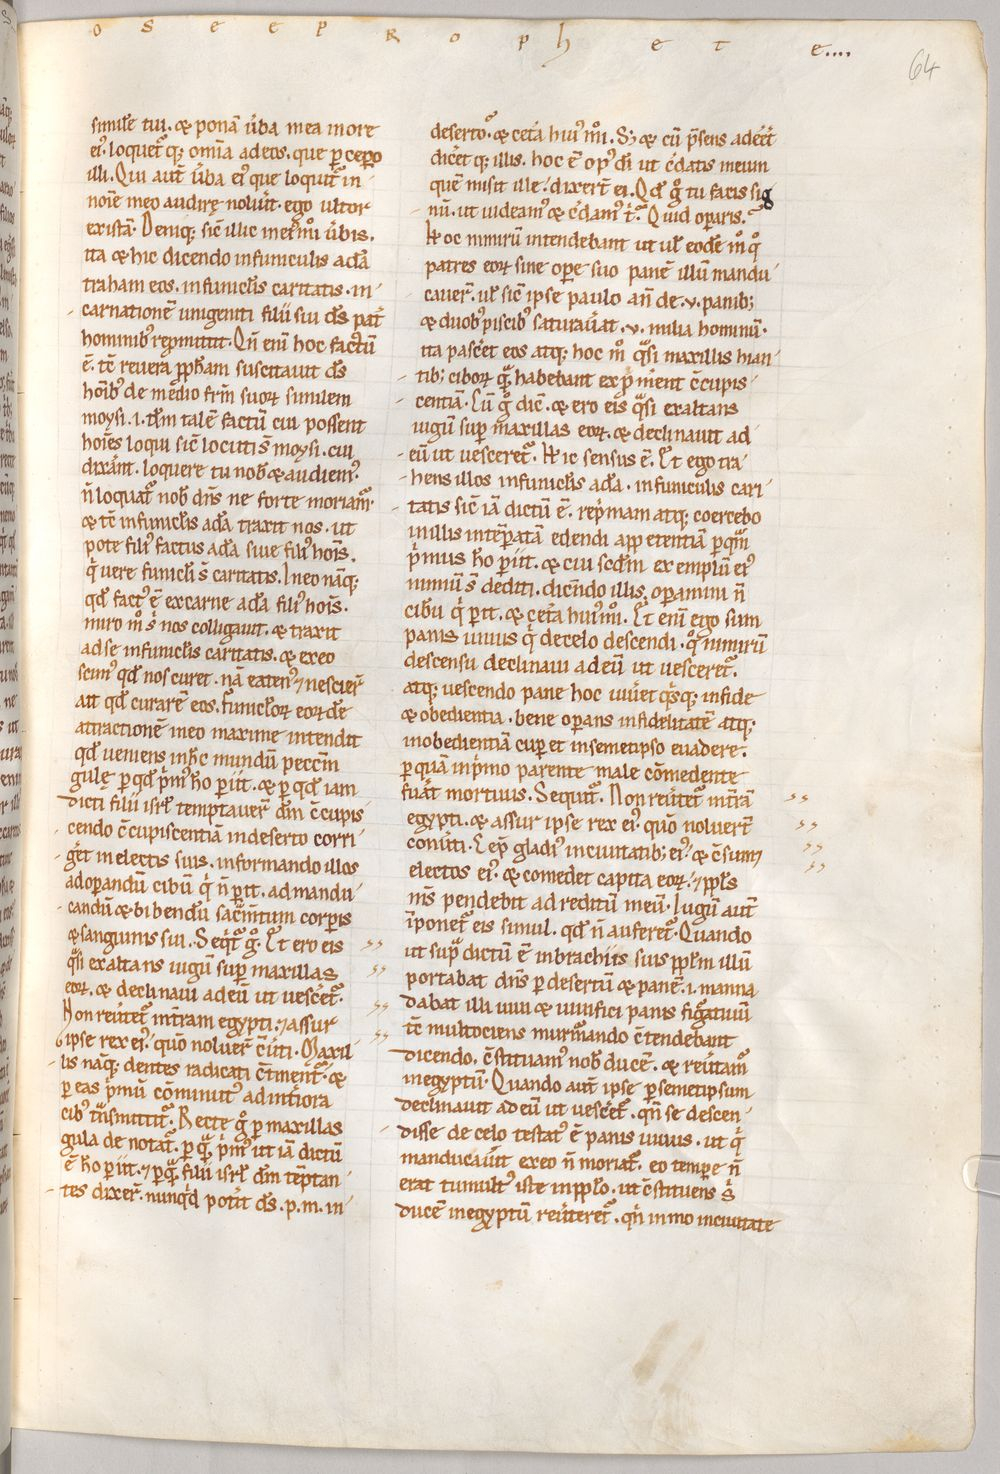 o s e e p R o p h e t e....
64
simile tui. & ponā ũba mea in ore
ei᾽. loquet᷑ q; om̄ia ad eos. que p̄cepo
illi. Qui aut̄ ũba ei᾽ que loquit᷑ in
noīe meo audirę noluit. ego ultor
existā. Deniq; sic̄ illic in ũbis.
ita & hic dicendo in funiculis adā
traham eos. in funiclis caritatis. in
carnationē unigeniti filii sui d̄s pat̄
hominib᾽ repmittit. Qn̄ eni hoc factū
ē. tc̄ revera pph̄am suscitavit d̄s
hoīb᾽ de medio frm̄ suoꝝ similem
moysi .i. talē factū cui possent
hoīes loqui sic̄ locuti s̄ moysi. cui
dixāt. loquere tu nob̄ & audiem᾽.
n̄ loquat᷑ nob̄ dn̄s ne forte moriam᷑.
& tc̄ in funiclis adā traxit nos. ut
pote fili᾽ factus adā sive fili᾽ hoīs.
q̄ vere funicli s̄ caritatis. In eo nāq;
qd̄ fact᾽ ē ex carne adā fili᾽ hoīs.
miro m̊ s̄ nos colligavit. & traxit
ad se in funiclis caritatis. & ex eo
scim᾽ qd̄ nos curet. nā eaten᾽ ⁊ nescier̄
ait qd̄ curarē eos. funicloꝝ eoꝝdē
attractionē in eo maxime intendit
qd̄ veniens in hc̄ mundū peccm̄
gulę p qd̄ p̄m᾽ ho piit. & p qd̄ iam
dicti filii isrl̄ temptaver̄ dm̄ c̄cupis
cendo c̄cupiscentiā in deserto corri
get in electis suis. informando illos
ad opandū cibū q̄ n̄ pit. ad mandu
candū & bibendū sac̄mtum corpis
& sanguinis sui. Seqt᷑ g̊. Et ero eis
qᷓsi exaltans iugū sup maxillas
eoꝝ. & declinavi ad eū ut vescet᷑.
Non revtet᷑ in t̄ram egypti. ⁊ assur
ipse rex ei᾽. quō noluer̄ c̄vti. Maxil
lis nāq; dentes radicati c̄tinent᷑. &
p eas p̄mū cōminuit᾽ ad int̄iora
cib᾽ t̄nsmittit᷑. Recte g̊ p maxillas
gula denotat᷑. p qᷓ p̄m᾽ ut iā dictū
ē ho piit. ⁊ p qᷓ filii isrl̄ dm̄ tēptan
tes dixer̄. nunqd̄ potit d̄s .p.m. in
deserto᷑. & cet̄a hui᾽ m̊i. S; & cū p̄sens adeēt
dicet q; illis. hoc ē op᾽ di ut c̄datis in eum
quē misit ille. dixer̄t ei. Qd̄ g̊ tu facis sig
nū. ut videam᾽ & c̄dam᾽ t᷑. Quid oparis.
Hoc nimirū intendebant ut ul̄ eodē m̊ q̊
patres eoꝝ sine ope suo panē illū mandu
caver̄. ul̄ sic̄ ipse paulo an̄ de .v. panib;
& duob᾽ piscib᾽ saturavat .v. milia hominū.
ita pascet eos atq; hoc m̊ qᷓsi maxillis hian
tib; ciboꝝ qᷓ habebant c̄cupis
centiā. Cū g̊ dic̄. & ero eis qᷓsi exaltans
iugū sup maxillas eoꝝ. & declinavit ad
eū ut vesceret᷑. Hic sensus ē. Et ego tra
hens illos in funiclis adā. in funiculis cari
tatis sic̄ iā dictū ē. rep̄mam atq; coercebo
in illis intēpatā edendi appetentiā p quā
p̄mus ho piit. & cui scdm̄ exemplū ei᾽
nimiū s̄ dediti. dicendo illis. opamini n̄
cibū q̄ pit. & cet̄a hui᾽ m̊i. Et eni ego sum
panis vivus q̄ de celo descendi. q̊ nimirū
descensu declinavi ad eū ut vesceret᷑.
atq; vescendo pane hoc vivet qͥsq; in fide
& obedientia. bene opans infidelitatē atq;
inobedientiā cupet in semetipso evadere.
p quā in p̄mo parente male cōmedente
fuat mortuus. Sequit᷑. Non revtet᷑ in t̄rā
egypti. & assur ipse rex ei᾽. quō noluer̄t
convti. Cep gladi᾽ in civitatib; ei᾽. & c̄sum&
electos ei᾽. & comedet capita eoꝝ. ⁊ ppl̄s
m̄s pendebit ad reditū meū. Iugū aut̄
īponet᷑ eis simul. qd̄ n̄ auferet᷑. Quando
ut supᷓ dictū ē in brachiis suis pplm̄ illū
portabat dn̄s p desertū & panē .i. manna
dabat illi vivi & vivifici panis figativū
tc̄ multociens murmando c̄tendebant
dicendo. c̄stituam᾽ nob̄ ducē. & revtam᷑
in egyptū. Quando aut̄ ipse p semetipsum
declinavit ad eū ut vescet᷑. qn̄ se descen
disse de celo testat᾽ ē panis vivus. ut q̄
manducavit ex eo n̄ moriat᷑. eo tempe n̄
erat tumult᾽ iste in pplo. ut c̄stituens s̄
ducē in egyptū revteret᷑. qn̄ immo in civitate